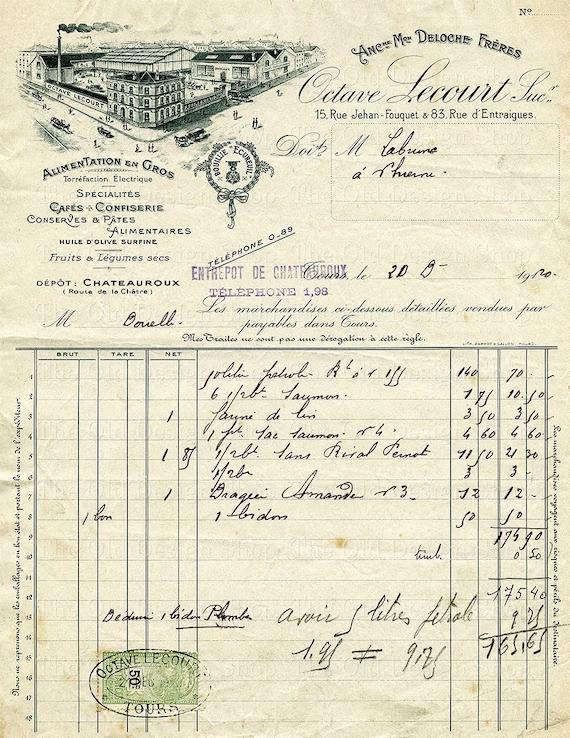 Nº
ANCNE MON DELOCHE FRÈRES
Octave Lecourt Sucr
15, Rue Jehan-Fouquet & 83, Rue d'Entraigues.
OCTAVE LECOURT
Doit M
à
ALIMENTATION EN GROS
Torréfaction Électrique
SPÉCIALITÉS
CAFÉS & CONFISERIE
CONSERVES & PÂTES
ALIMENTAIRES
HUILE D'OLIVE SURFINE
Fruits & Légumes secs
DÉPÔT: CHATEAUROUX
(Route de la Châtre)
BOUILLIE ECUREUIL
TÉLÉPHONE 0-89
ENTREPOT DE CHATEAUROUX
TÉLÉPHONE 1,98
Tours, le 20 1920
Les marchandises ci-dessous détaillées vendues par
M
payables dans Tours.
Mes Traites ne sont pas une dérogation à cette règle.
BRUT TARE NET
1 140 70 -
2 6 1/2 bts Saumon 1 75 10 50
3 1 3 50 3 50
4 1 Sac Saumon n 4 4 60 4 60
5 1 85 1/2 bte Sans Rival Pernot 11 50 21 30
6 1/2 bte 3 3 -
7 1 Amande n 3 12 12 -
8 1 bon 1 bidon 50 50
9 174 90
10 timb. 0 50
11
12 175 40
13 Déduire 1 bidon Plombé avoir 5 litres pétrole 9 75
14 1.95 = 9.75 165,65
15
16
17
18
OCTAVE LECOURT
50
TOURS
Nous ne reprenons que les emballages en bon état et portant le nom de l'expéditeur.
Les marchandises voyagent aux risques et périls du destinataire.